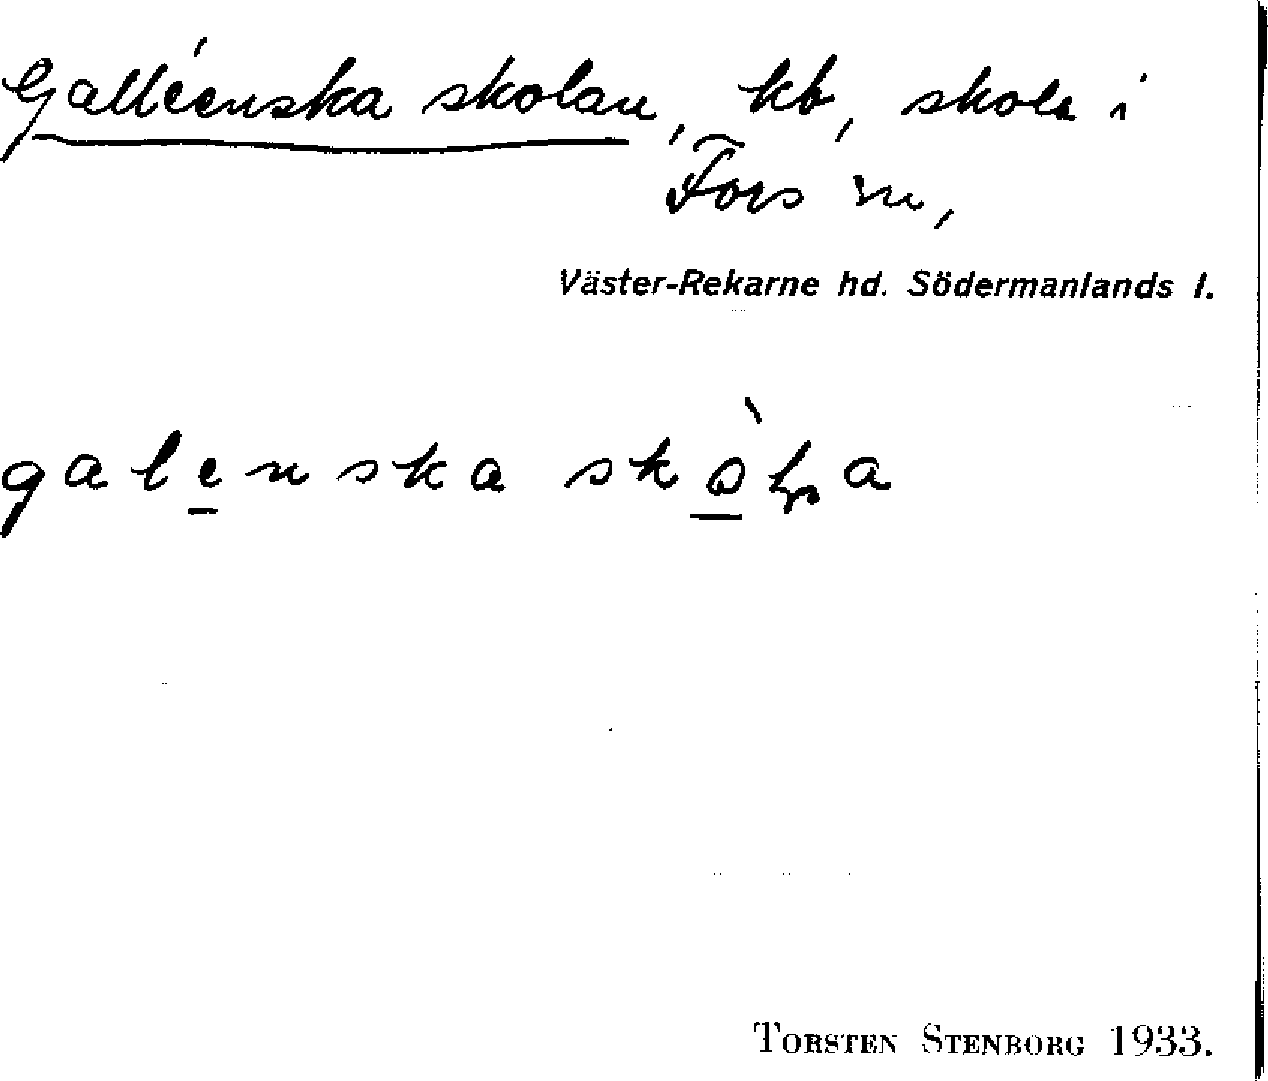 Galléenska skolan, kb, skola i
Fors sn,
Väster-Rekarne hd. Södermanlands l.
galenska skòla
TORSTEN STENBORG 1933.